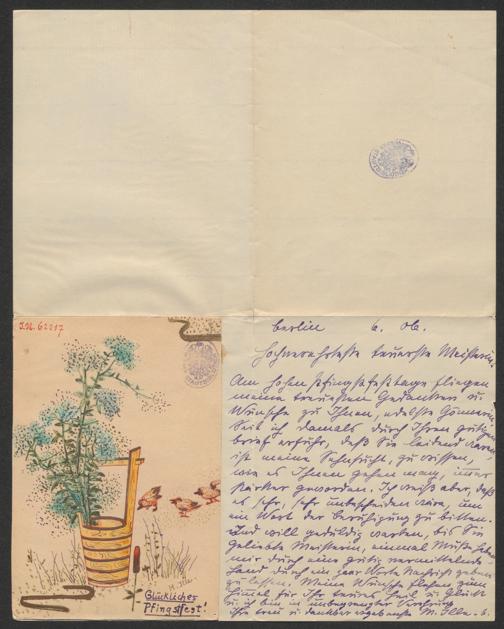 I.N. 62217
Glückliches
Pfingstfest!
M. Illa.
Berlin 6. 06.
Hochverehrteste teuerste Meisterin.
Am hohen Pfingstfesttage fliegen
meine treuesten Gedanken u.
Wünsche zu Ihnen, edelste Gönnerin.
Seit ich damals durch Ihren gütig.
Brief erfuhr, daß Sie leidend waren
ist meine Sehnsucht, zu wissen,
wie es Ihnen gehen mag, immer
stärker geworden. Ich weiß aber, daß
es sehr, sehr unbescheiden wäre, um
ein Wort der Beruhigung zu bitten.
Und will geduldig warten, bis Sie
geliebte Meisterin, einmal Muße haben
mir durch eine gütig vermittelnde
Hand durch ein paar Worte Nachricht geben
zu lassen. Meine Wünsche flehen zum
Himmel für Ihr teures Heil u. Glück
u. ich bin in unbegrenzter Verehrung
Ihre treu u. dankbar ergebenste M.